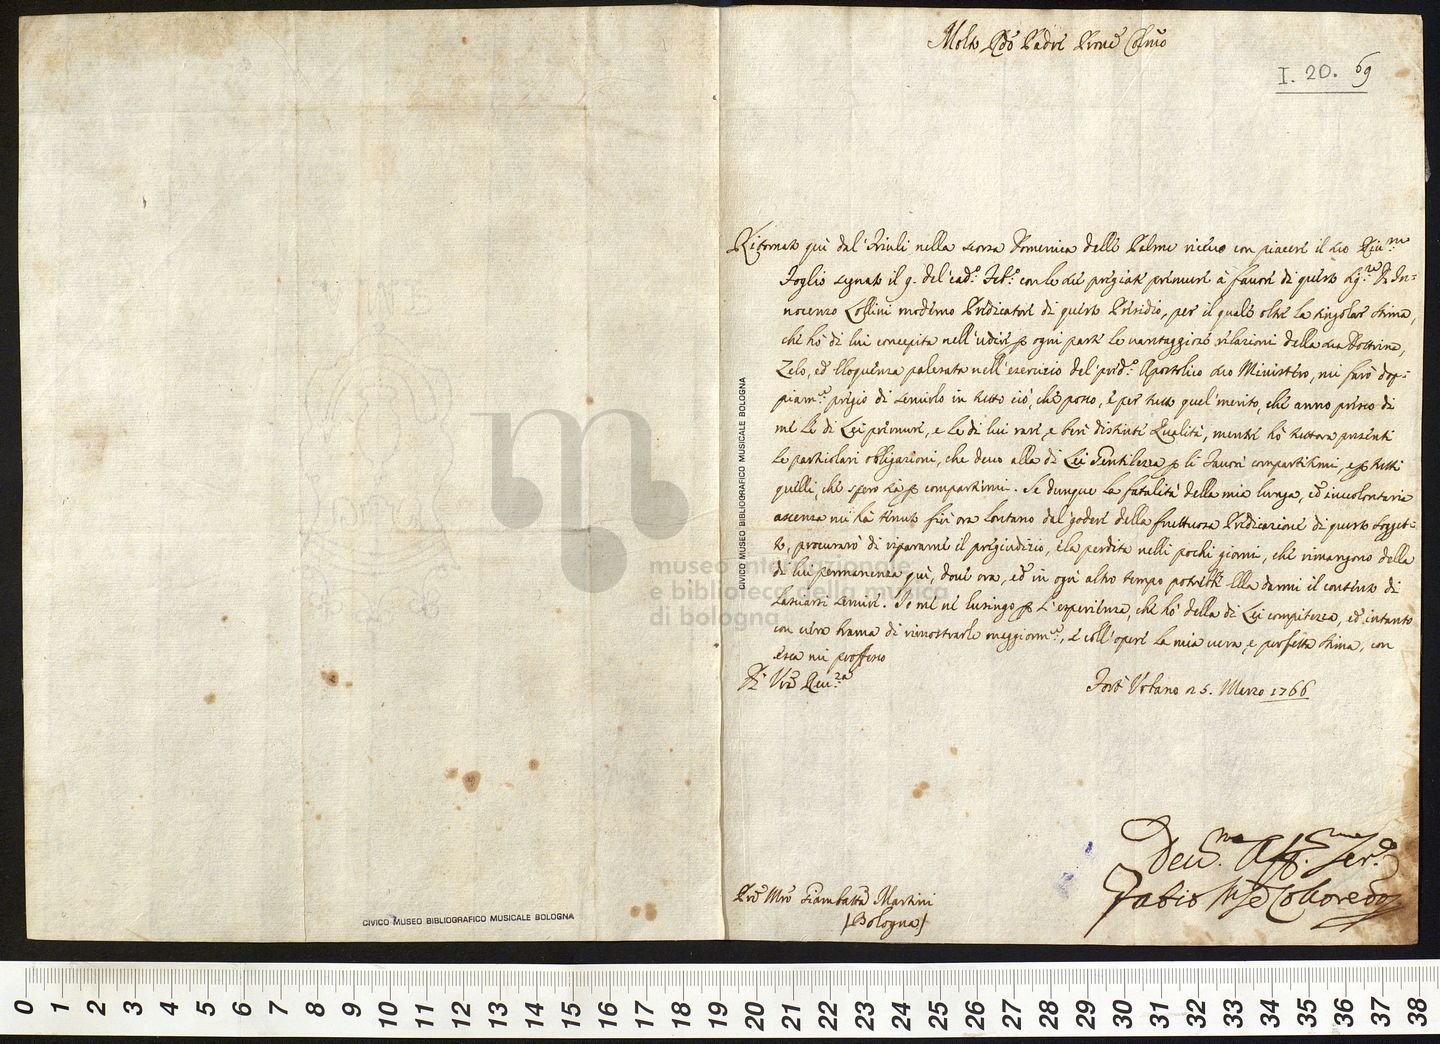 Molto Rdo Padre Prone Colmo
I. 20. 69
Ritornato qui dal Friuli nella scorsa Domenica delle Palme ricevo con piacere il suo Riv.mo
Foglio segnato il 9. del cad.o con le sue pregiate premure à favore di questo P. In-
nocenzo Collini moderno Predicatore di questo Presidio, per il quale oltre la singolar stima,
che hò di lui concepita nell'udire p ogni parte le vantaggiose relazioni della sua Dottrina,
Zelo, ed Eloquenza palesata nell'esercizio del pred.o Apostolico suo Ministéro, mi farò dop-
piam.e pregio di servirlo in tutto ciò, che posso, e per tutto quel merito, che anno presso di
mè le di Lei premure, e le di lui rare, e ben distinte Qualità, mentre hò tuttora presenti
le particolari obbligazioni, che devo alla di Lei Gentilezza p li Favori compartitimi, e p tutti
quelli, che spero sia p compartirmi. Se dunque la fatalità della mia lunga, ed involontaria
assenza mi hà tenuto fin ora lontano dal godere della fruttuosa Predicazione di questo Sogget-
to, procurarò di ripararne il pregiudizio, e la perdita nelli pochi giorni, che rimangono della
di lui permanenza quì, dove ora, ed in ogni altro tempo potrebbe Ella darmi il contento di
lasciarsi servire. Io me ne lusingo p l'esperienza, che hò della di Lei compitezza, ed intanto
con vera brama di rimostrarle maggiorm.e, e coll'opere la mia vera, e perfetta stima, con
essa mi proffesso
Di Vrã Rev.za
Forte Urbano 25. Marzo 1766
Dev.mo Aff.mo Ser.e
Fabio Colloredo
Prẽ Mrõ Giambattã Martini
(Bologna)
CIVICO MUSEO BIBLIOGRAFICO MUSICALE BOLOGNA
CIVICO MUSEO BIBLIOGRAFICO MUSICALE BOLOGNA
museo internazionale
e biblioteca della musica
di bologna
0 1 2 3 4 5 6 7 8 9 10 11 12 13 14 15 16 17 18 19 20 21 22 23 24 25 26 27 28 29 30 31 32 33 34 35 36 37 38